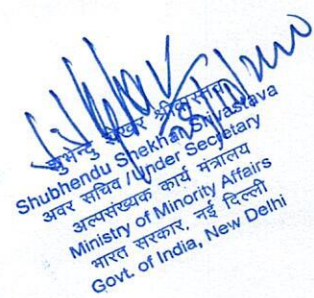 शुभेन्दु शेखर श्रीवास्तव
Shubhendu Shekhar Shrivastava
अवर सचिव / Under Secretary
अल्पसंख्यक कार्य मंत्रालय
Ministry of Minority Affairs
भारत सरकार, नई दिल्ली
Govt. of India, New Delhi